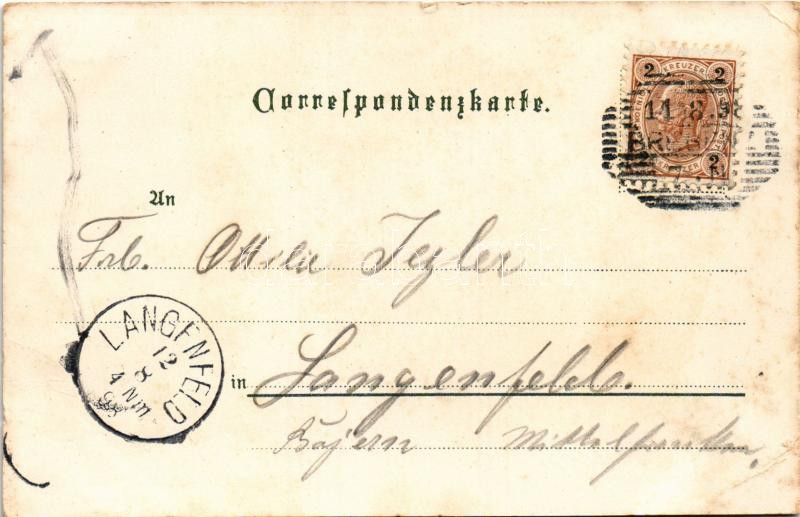 Correspondenzkarte.
2 KREUZER 2
11.8.98
2
KREUZER
An
Frl. Ottilie
LANGENFELD
12
8
4 Nm.
98
in Langenfeld.
Bayern Mittelfranken,